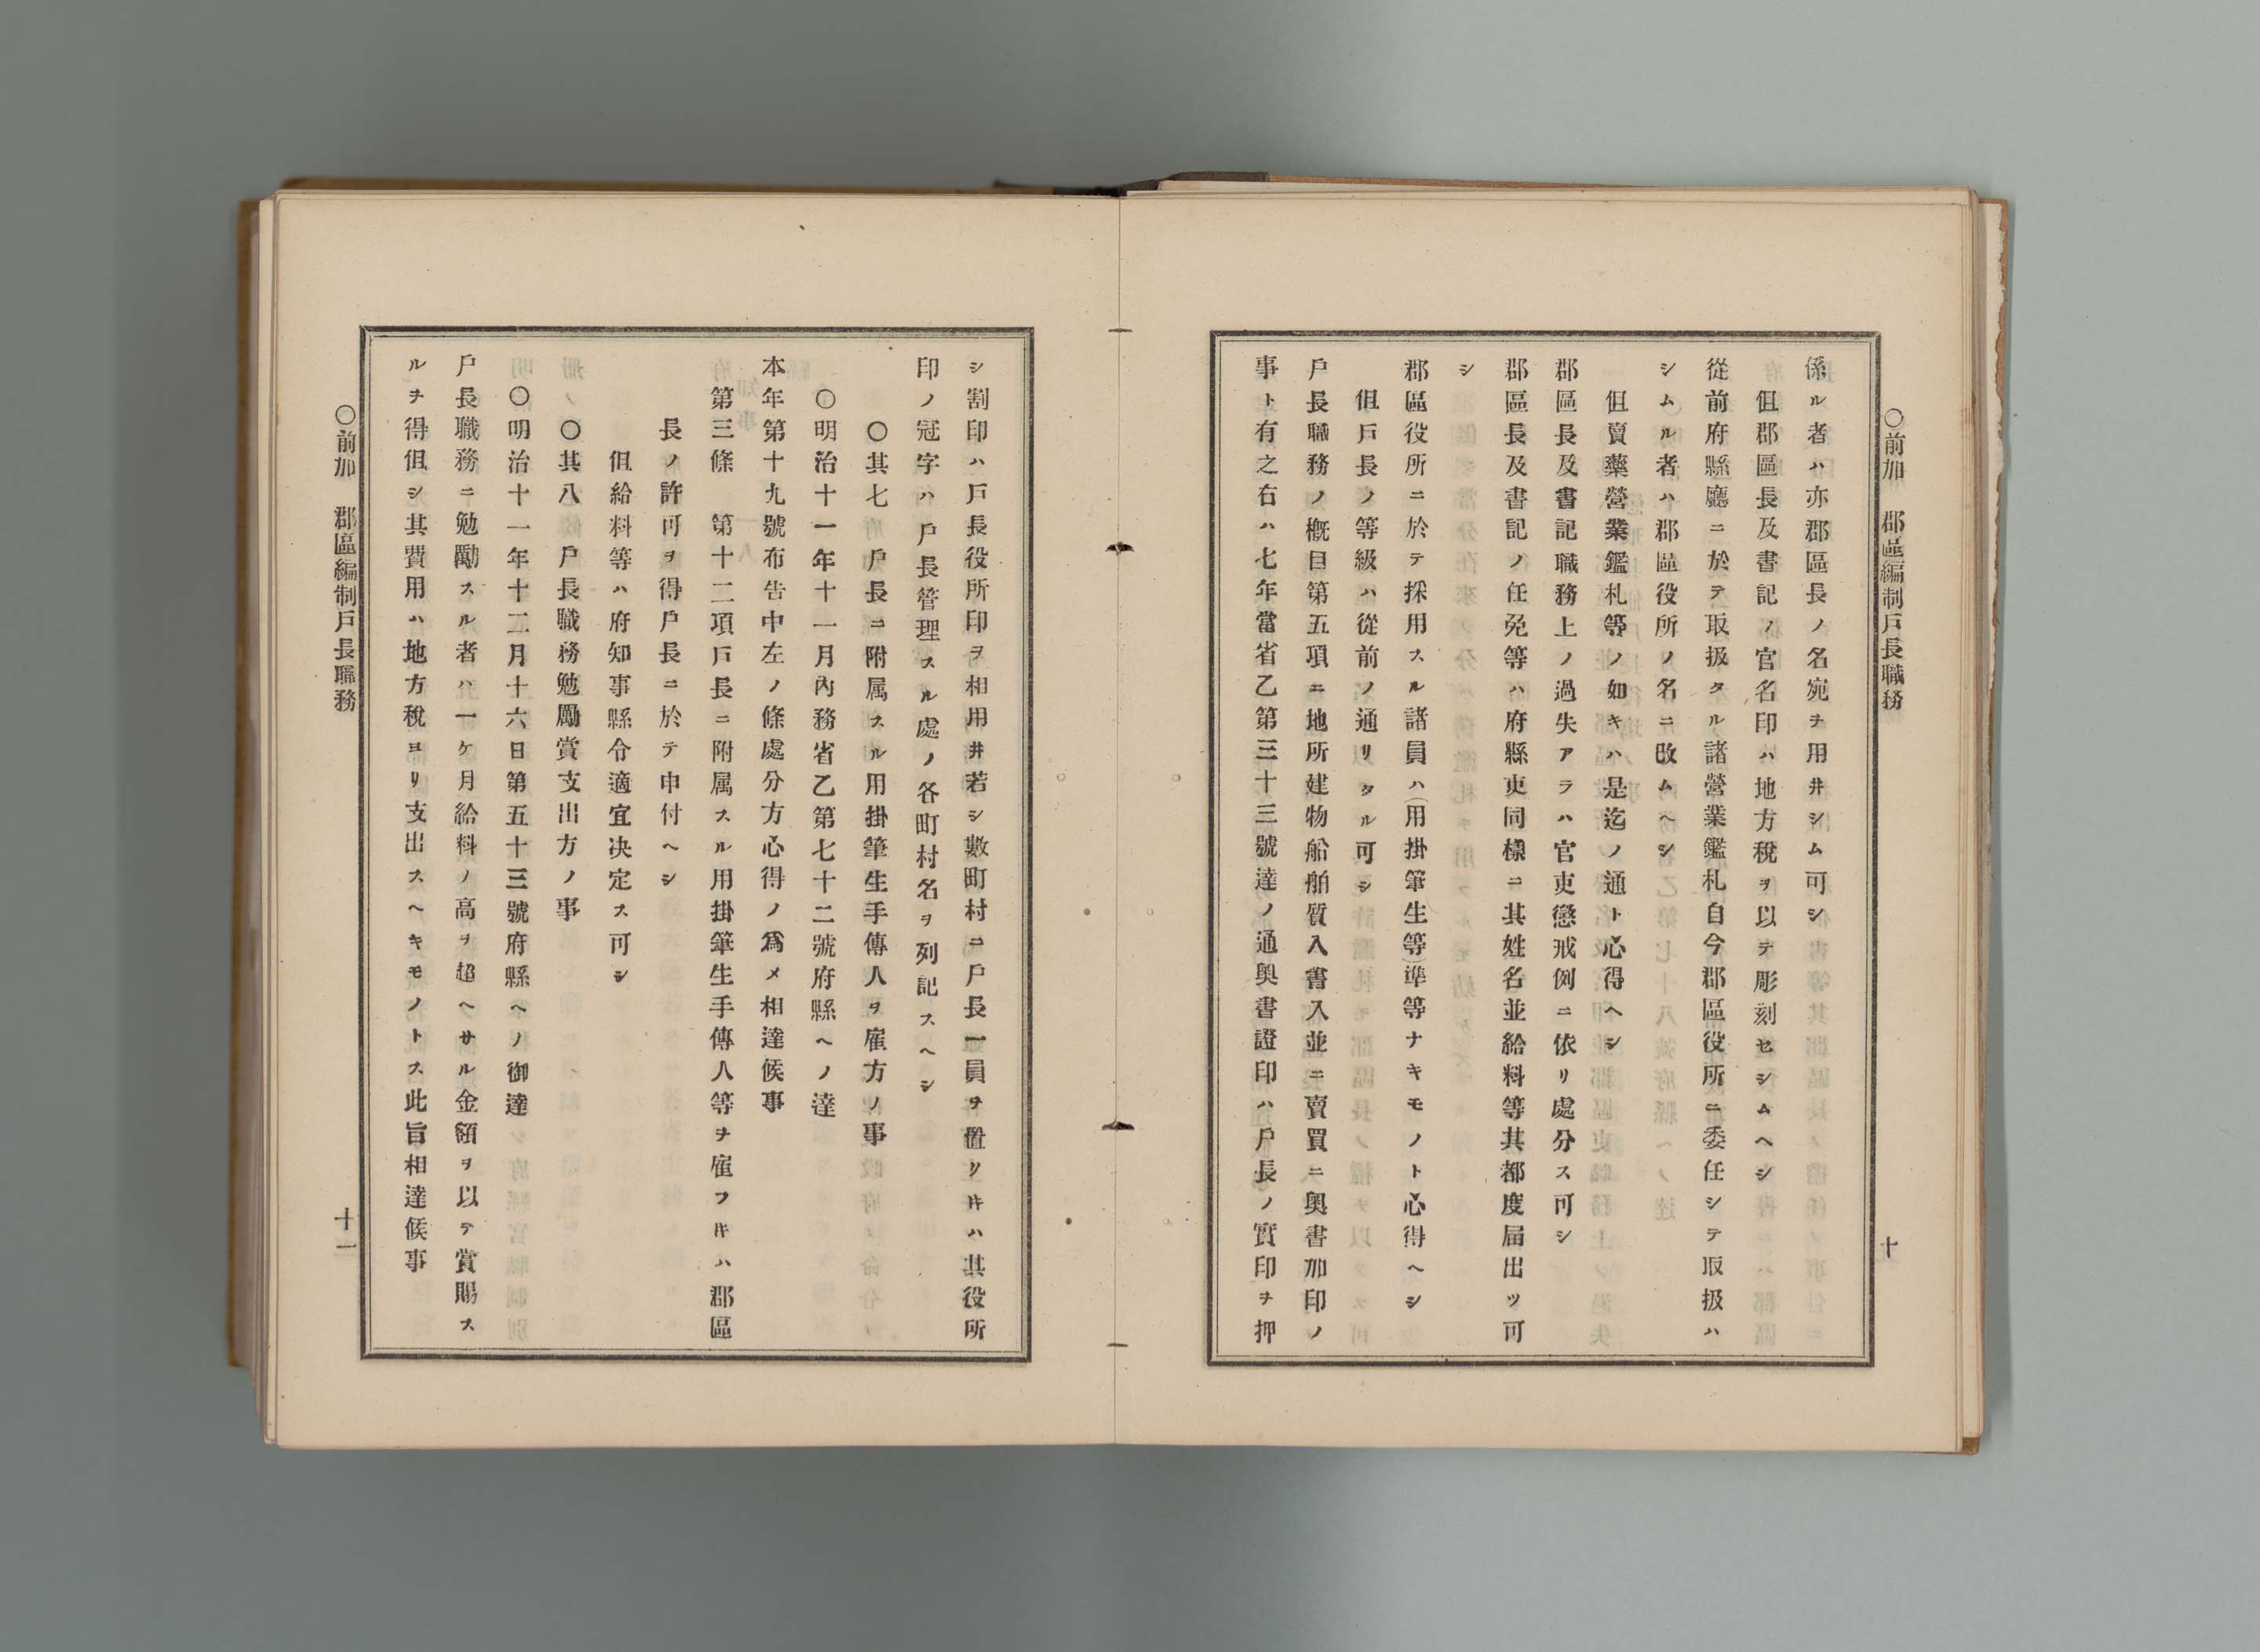 ○前加　郡區編制戸長職務
十
係ル者ハ亦郡區長ノ名宛ヲ用井シム可シ
但郡區長及書記ノ官名印ハ地方稅ヲ以テ彫刻セシムヘシ
從前府縣廳ニ於テ取扱タル諸營業鑑札自今郡區役所ニ委任シテ取扱ハ
シムル者ハ郡區役所ノ名ニ改ムヘシ
但賣藥營業鑑札等ノ如キハ是迄ノ通ト心得ヘシ
郡區長及書記職務上ノ過失アラハ官吏懲戒例ニ依リ處分ス可シ
郡區長及書記ノ任免等ハ府縣吏同樣ニ其姓名並給料等其都度屆出ツ可
シ
郡區役所ニ於テ採用スル諸員ハ(用掛筆生等)準等ナキモノト心得ヘシ
但戸長ノ等級ハ從前ノ通リタル可シ
戸長職務ノ概目第五項ニ地所建物船舶質入書入並ニ賣買ニ奧書加印ノ
事ト有之右ハ七年當省乙第三十三號達ノ通奧書證印ハ戸長ノ實印ヲ押
シ割印ハ戸長役所印ヲ相用井若シ數町村ニ戸長一員ヲ置クキハ其役所
印ノ冠字ハ戸長管理スル處ノ各町村名ヲ列記スヘシ
○其七　戸長ニ附属スル用掛筆生手傳人ヲ雇方ノ事
○明治十一年十一月內務省乙第七十二號府縣ヘノ達
本年第十九號布告中左ノ條處分方心得ノ爲メ相達候事
第三條　第十二項戸長ニ附属スル用掛筆生手傳人等ヲ雇フキハ郡區
長ノ許可ヲ得戸長ニ於テ申付ヘシ
但給料等ハ府知事縣令適宜決定ス可シ
○其八　戸長職務勉勵賞支出方ノ事
○明治十一年十二月十六日第五十三號府縣ヘノ御達
戸長職務ニ勉勵スル者ハ一ケ月給料ノ高ヲ超ヘサル金額ヲ以テ賞賜ス
ルヲ得但シ其費用ハ地方稅ヨリ支出スヘキモノトス此旨相達候事
○前加　郡區編制戸長職務
十一